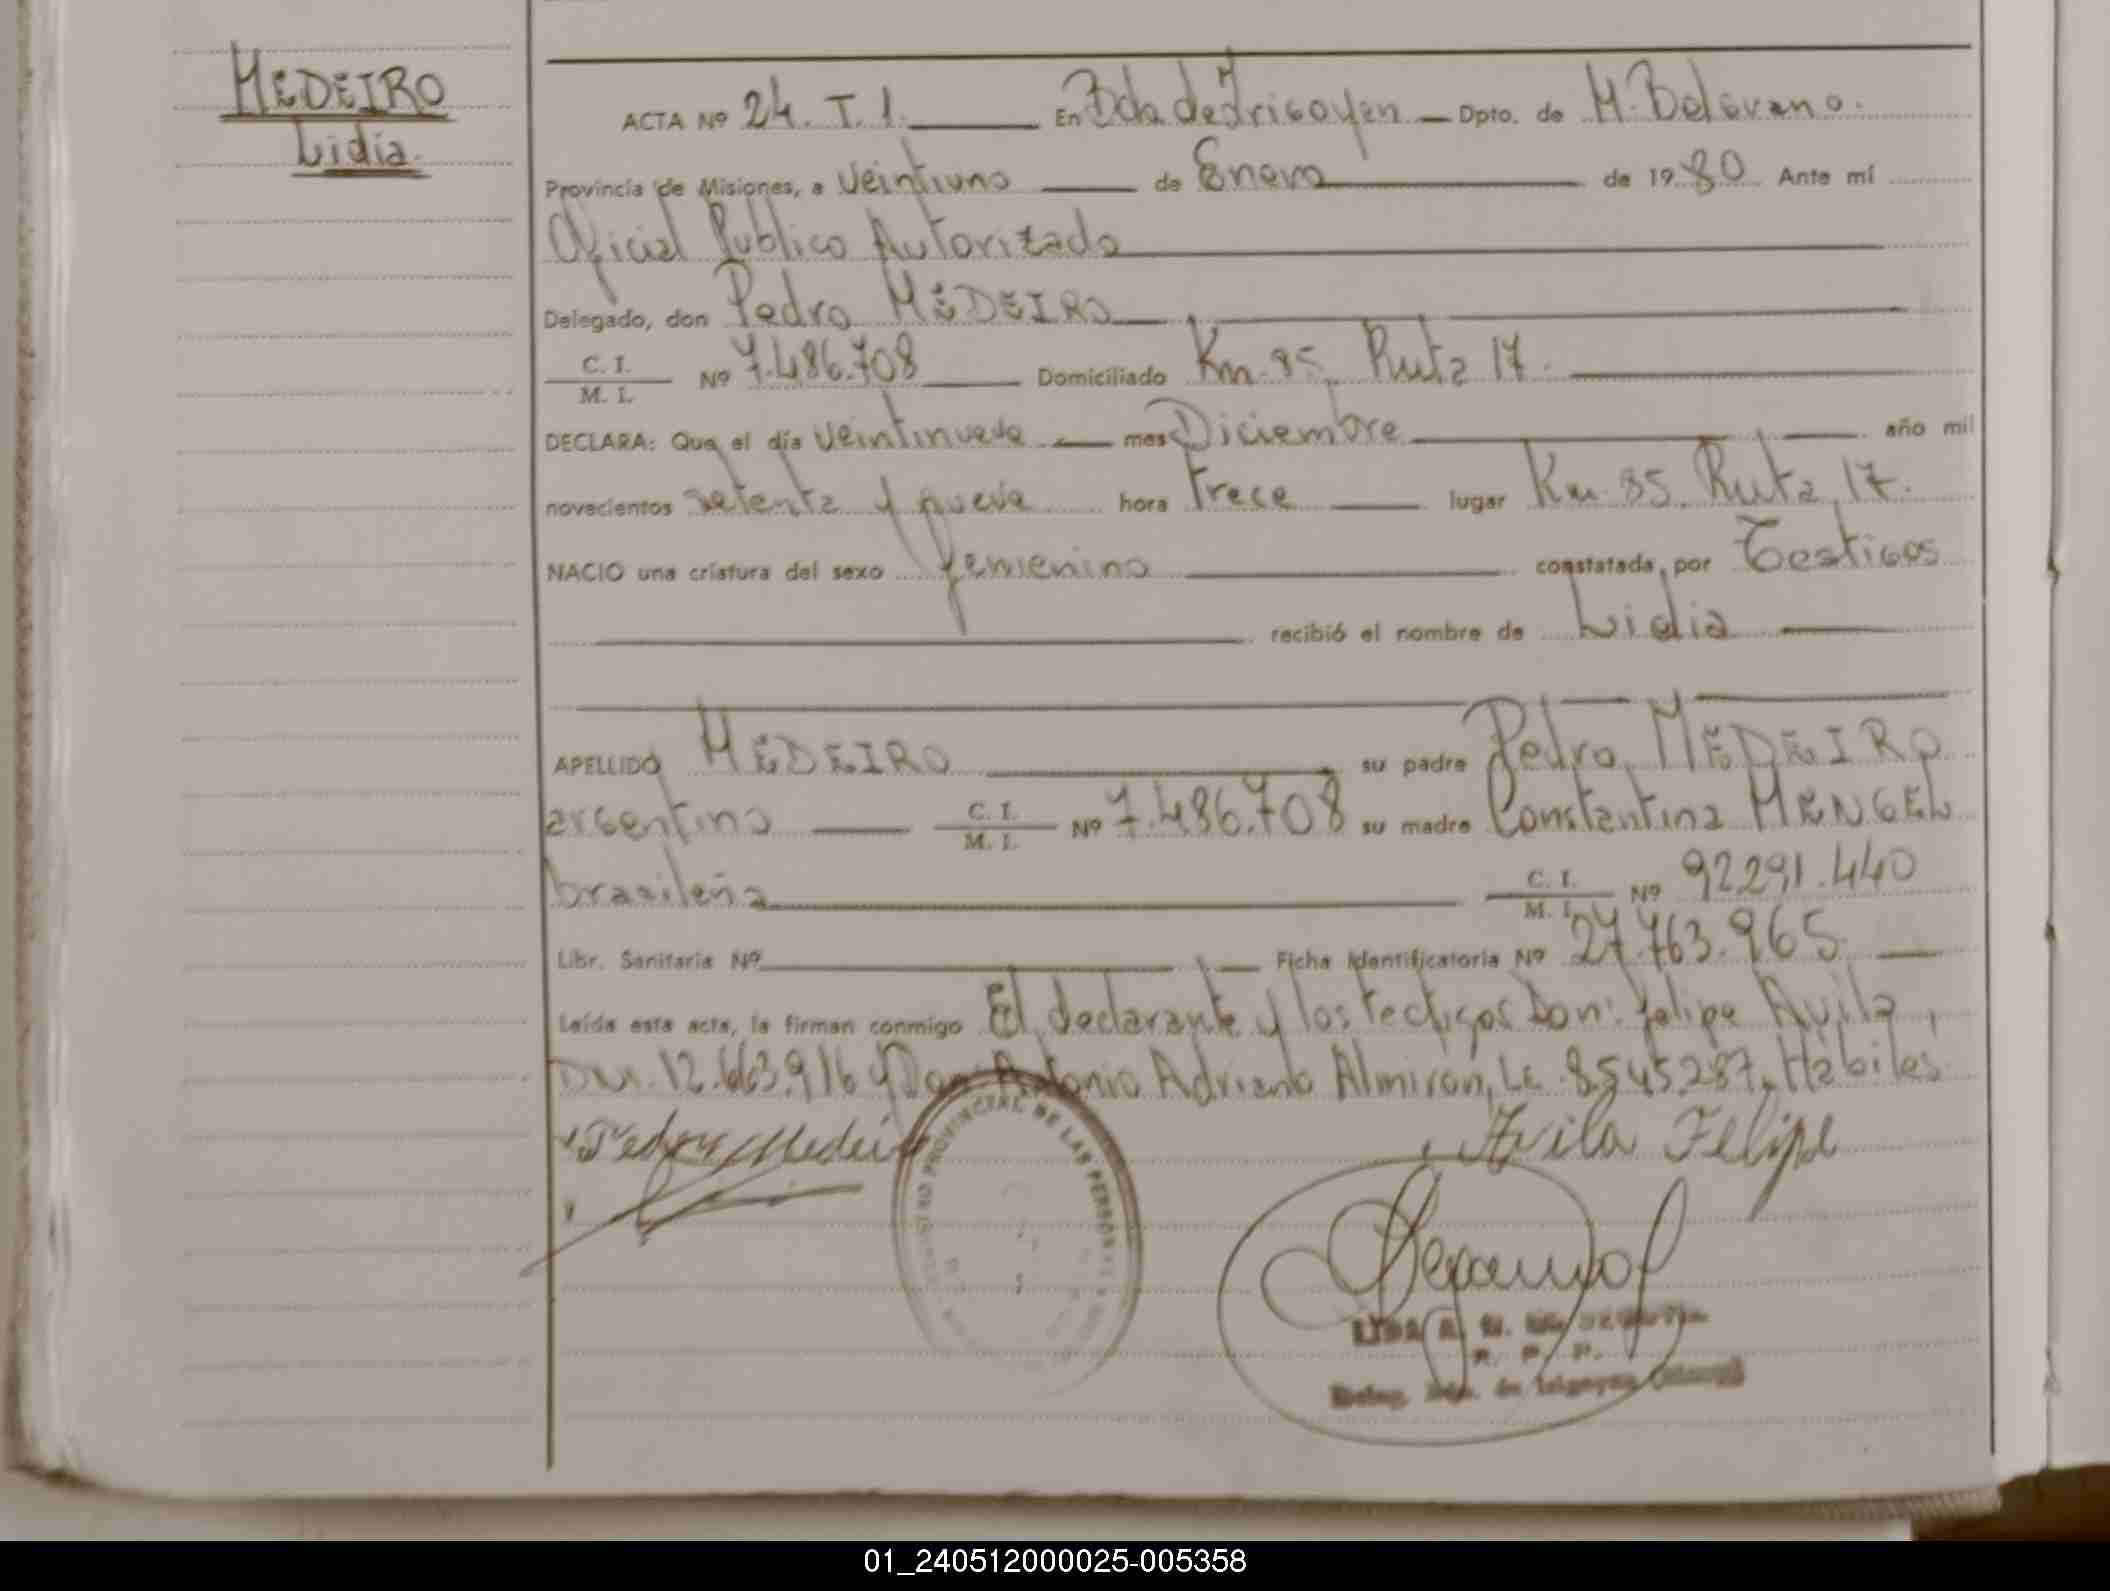 MEDEIRO
Lidia.
ACTA Nº 24. T. 1. En Bda de Irigoyen Dpto. de M. Belgrano.
Provincia de Misiones, a veintiuno de Enero de 1980 Ante mí
Oficial Público Autorizado
Delegado, don Pedro MEDEIRO
C. I.
M. I. Nº 7.486.708 Domiciliado Km. 85, Ruta 17.
DECLARA: Que el día veintinueve mes Diciembre año mil
novecientos setenta y nueve hora trece lugar Km. 85. Ruta 17.
NACIO una criatura del sexo femenino constatada por Testigos
recibió el nombre de Lidia
APELLIDO MEDEIRO su padre Pedro MEDEIRO
argentino C. I.
M. I. Nº 7.486.708 su madre Constantina MENGEL
brasileña C. I.
M. I. Nº 92.291.440
Libr. Sanitaria Nº Ficha Identificatoria Nº 27.763.965.
Leída esta acta, la firman conmigo El declarante y los testigos Don: Felipe Avila,
DNI. 12.663.916 y Don Antonio Adriano Almirón, LE. 8.545.287, Hábiles
Pedro Medeiro
Avila Felipe
REGISTRO PROVINCIAL DE LAS PERSONAS
R. P. P.
01_240512000025-005358